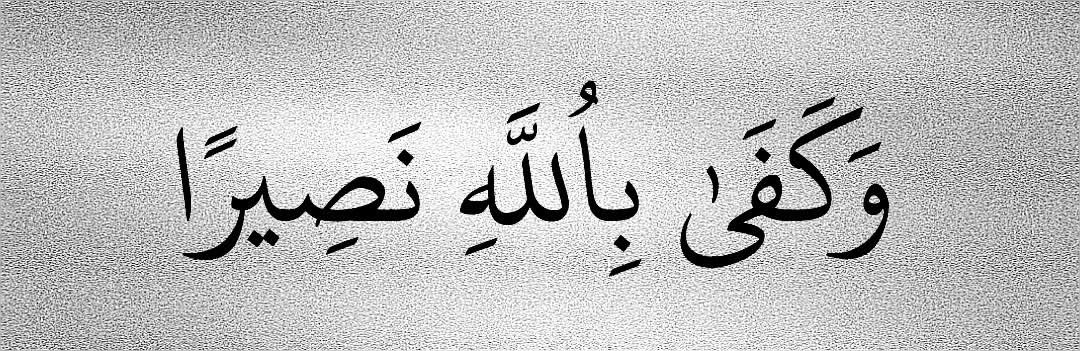 وَكَفَىٰ بِاُللَّهِ نَصِيرًا